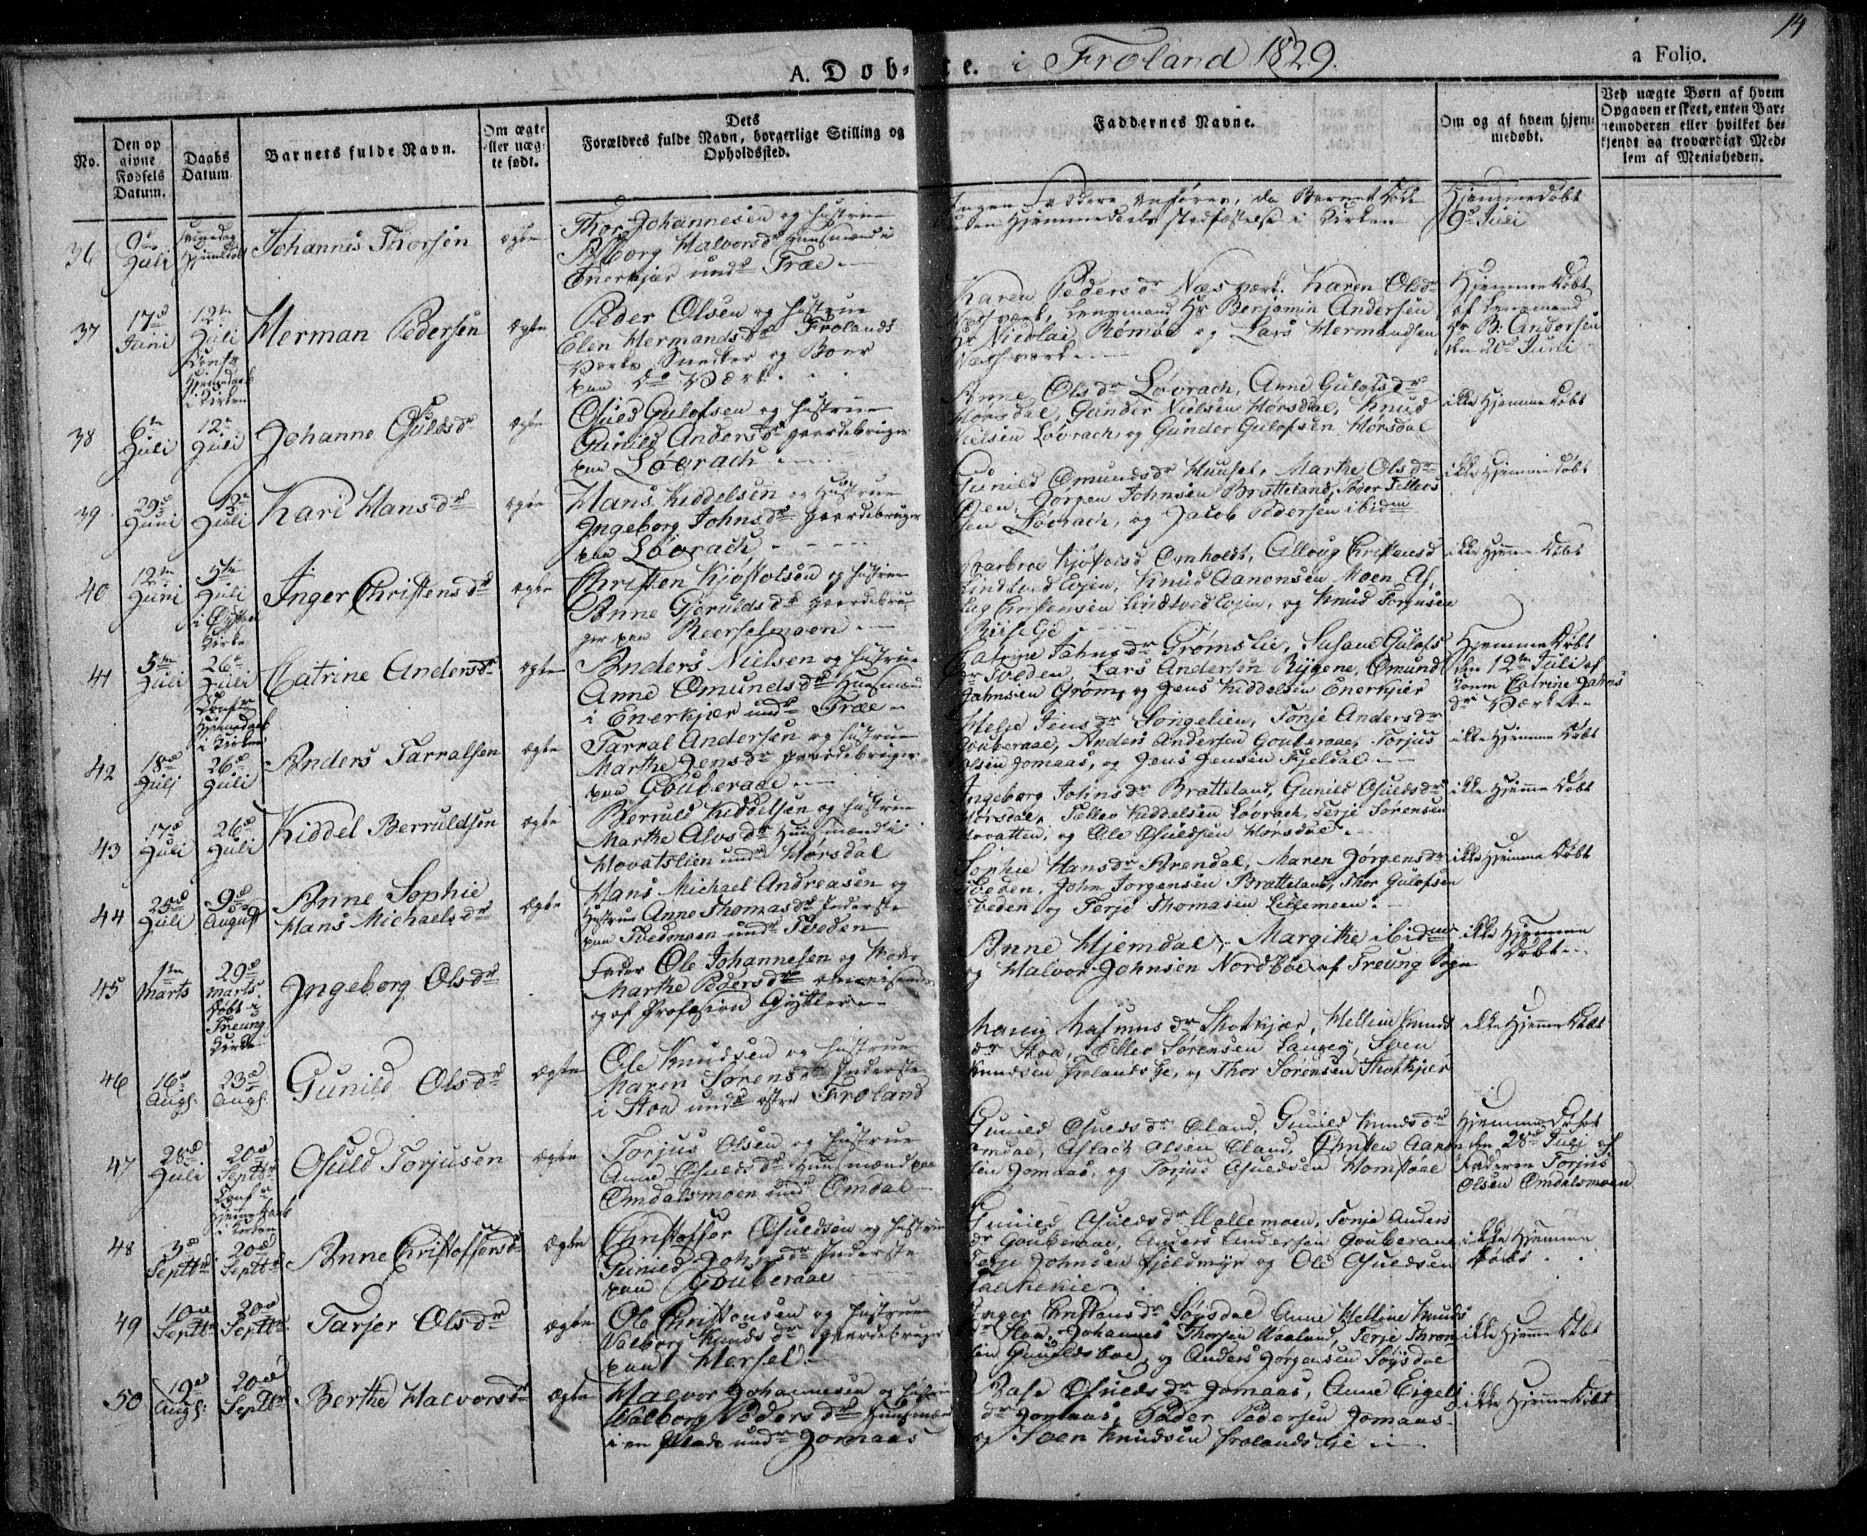 14
A. Døbte. i Froland 1829.
a Folio.
No.
Den op
givne
Fødsels
Datum.
Daabs
Datum
Barnets fulde Navn.
Om ægte
eller uæg-
te født.
Dets
Forældres fulde Navn, borgerlige Stilling og
Opholdssted.
Faddernes Navne.
Om og af hvem hjem-
medøbt.
Ved uægte Børn af hvem
Opgaven er skeet, enten Bar-
nemoderen eller hvilket be-
kjendt og troværdigt Med-
lem af Menigheden.
36
9de
Juli
Johannes Thorsen
ægte
Thor Johannesen og Hustrue
Halvorsdr Huusmænd i
Enerkjær undr Træe
Ingen Faddere anføres, da Barnet døde
uden Hjemmedaabs stadfæstelse i Kirken
Hjemmedøbt
9de Juli
37
17de
Juni
12te
Juli
Conf.
Hjemmedaab
i Kirken
Herman Pedersen
ægte
Peder Olsen og Hustrue
Elen Hermandsdr Frolands
Værks Smedter og Boer
paa do Værk.
Karen Pedersdr Næs værk. Karen Olsdr
værk, Lensmand Hr Benjamin Andersen
Hr Nicolai Rømoe og Lars Hermandsen
værk
Hjemmedøbt
af Lensmand
Hr B. Andersen
den 20de Juni
38
6te
Juli
12te
Juli
Johanne Osuldsdr
ægte
Osuld Gulofsen og Hustrue
Gunild Andersdr Gaardebruger
paa Løvrach
Anne Olsdr Løvrach, Anne Gulofsdr
Hørsdal, Gunder Nielsen Hørsdal, Knud
Nielsen Løvrach, og Gunder Gulofsen Hørsdal
ikke Hjemmedøbt
39
29de
Juni
12te
Juli
Kari Hansdr
ægte
Hans Kiddelsen og Hustrue
Ingeborg Johnsdr Gaardebruger
paa Løvrach
Gunild Omundsdr Huuset, Marthe Olsdr
Øen, Jørgen Johnsen Bratteland, Peder Tellefs
sen Løvrach, og Jacob Pedersen ibidm
ikke Hjemmedøbt
40
12te
Juni
5te
Juli
i
Kirke
Inger Christensdr
ægte
Christen Kjøstolsen og Hustrue
Anne Gjeruldsdr Gaardebru
ger paa Reerselmoen
Barbroe Kjøstolsd Omholdt, Alloug Christensd
Lindtved Evjen, Knud Aanonsen Moen, As
lag Christensen Lindtved Evjen, og Knud Torjusen
ikke Hjemmedøbt
41
5te
Juli
26de
Juli
Conf.
Hjemmedaab
i Kirken
Catrine Andersdr
ægte
Anders Nielsen og Hustrue
Anne Omundsdr Huusmænd
i Enerkjær undr Træe
Catrine Jahnsdr Grømslie, Susane Gulofs
dr Tveden, Lars Andersen Rygene, Omund
Jahnsen Grøm, og Jens Kiddelsen Enerkjær
Hjemmedøbt
den 12te Juli af
Catrine Jahns
dr Værket
42
18de
Juli
26de
Juli
Anders Tarralsen
ægte
Tarral Andersen og Hustrue
Marthe Jensdr Gaardebruger
paa Gouberaae
Helje Jensdr Songelien, Tonje Andersdr
Gouberaae, Anders Andersen Gouberaae, Torjus
Olsen Jomaas, og Jens Jensen Fjeldal
ikke Hjemmedøbt
43
17de
Juli
26de
Juli
Kiddel Berruldsen
ægte
Berruld Kiddelsen og Hustrue
Marthe Alvsdr Huusmænd i
Hovatslien undr Hørsdal
Ingeborg Johnsdr Bratteland, Gunild Osuldsdr
Hørsdal, Tellev Kiddelsen Løvrach, Terje Sørensen
Hovatten, og Ole Osuldsen Hørsdal
ikke Hjemmedøbt
44
25de
Juli
9de
August
Anne Sophie
Hans Michaelsdr
ægte
Hans Michael Andreasen og
Hustrue Anne Thomasdr Inderste
paa Tvedmoen undr Tveden
Sophie Hansdr Arendal, Maren Jørgensdr
Tveden, John Jørgensen Bratteland, Thor Gulofsen
Tveden, og Terje Thomasen Lillemoen
ikke Hjemmedøbt
45
1ste
Marts
29de
Marts
døbt i
Treung
Kirke
Ingeborg Olsdr
Fader Ole Johannesen og Moder
Marthe Pedersdr
og af Profesion Gjøtler
Anne Hjemdal, Margithe ibidm
og Halvor Johnsen Nordbøe af Treung Sogn
ikke Hjemme
døbt
46
16de
Augs.
23de
Augs.
Gunild Olsdr
ægte
Ole Knudsen og Hustrue
Maren Sørensdr Inderste
i Stoa undr østre Froland
Maren Rasmusdr Thotkjær, Helline Knuds
dr Stoa, Ellev Sørensen Lauvey, Sven
Knudsen Frolandslie, og Thor Sørensen Thotkjær
ikke Hjemmedøbt
47
28de
Juli
20de
Septbr
Conf.
Hjemmedaab
i Kirken
Osuld Torjusen
ægte
Torjus Olsen og Hustrue
Anne Osuldsdr Huusmænd paa
Omdalsmoen undr Omdal
Gunild Osuldsdr Øland, Gunild Knudsdr
Omdal, Aslach Olsen Øland, Christen Aanon
sen Jomaas, og Torjus Osuldsen Homstøal
Hjemmedøbt
den 28de Juli af
Faderen Torjus
Olsen Omdalsmoen
48
3de
Septbr
20de
Septbr
Anne Christoffersdr
ægte
Christoffer Osuldsen og Hustrue
Gunild Johnsdr Inderste
paa Gouberaae
Gunild Osuldsdr Hallemoen, Tonje Anders
dr Gouberaae, Anders Andersen Gouberaae,
Terje Johnsen Fjeldmyr og Ole Osuldsen
ikke Hjemme
døbt
49
10de
Septbr
20de
Septbr
Tarjer Olsdr
ægte
Ole Christensen og Hustrue
Valborg Knudsdr Gaardebruger
paa Hersel
Inger Christensdr Søgsdal Anne Helline Knuds
dr Stoa, Johannes Thorsen Haaland, Terje Thron
sen Gunildsboe, og Anders Jørgensen Søgsdal
ikke Hjemmedøbt
50
19de
Augs.
20de
Septbr
Berthe Halvorsdr
ægte
Halvor Johannesen og Hustrue
Valborg Pedersdr Huusmænd
i en Plads undr Jomaas
Aase Osuldsdr Jomaas, Anne Eigels
dr Jomaas, Peder Pedersen Jomaas
og Sven Knudsen Frolandslie
ikke Hjemmedøbt